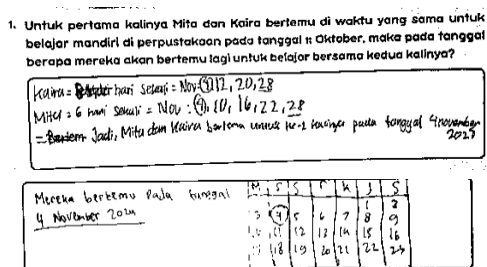 1. Untuk pertama kalinya Mita dan Kaira bertemu di waktu yang sama untuk
belajar mandiri di perpustakaan pada tanggal 11 Oktober, maka pada tanggal
berapa mereka akan bertemu lagi untuk belajar bersama kedua kalinya?
Kaira = hari sekali = Nov: 4, 12, 20, 28
Mita = 6 hari sekali = Nov: 4, 10, 16, 22, 28
= Jadi, Mita dan Kaira bertemu untuk ke-2 kalinya pada tanggal 4 november
2024
Mereka bertemu Pada tanggal
4 November 2024
M S S r k J S
1 2
3 4 5 6 7 8 9
11 12 13 14 15 16
18 19 20 21 22 23